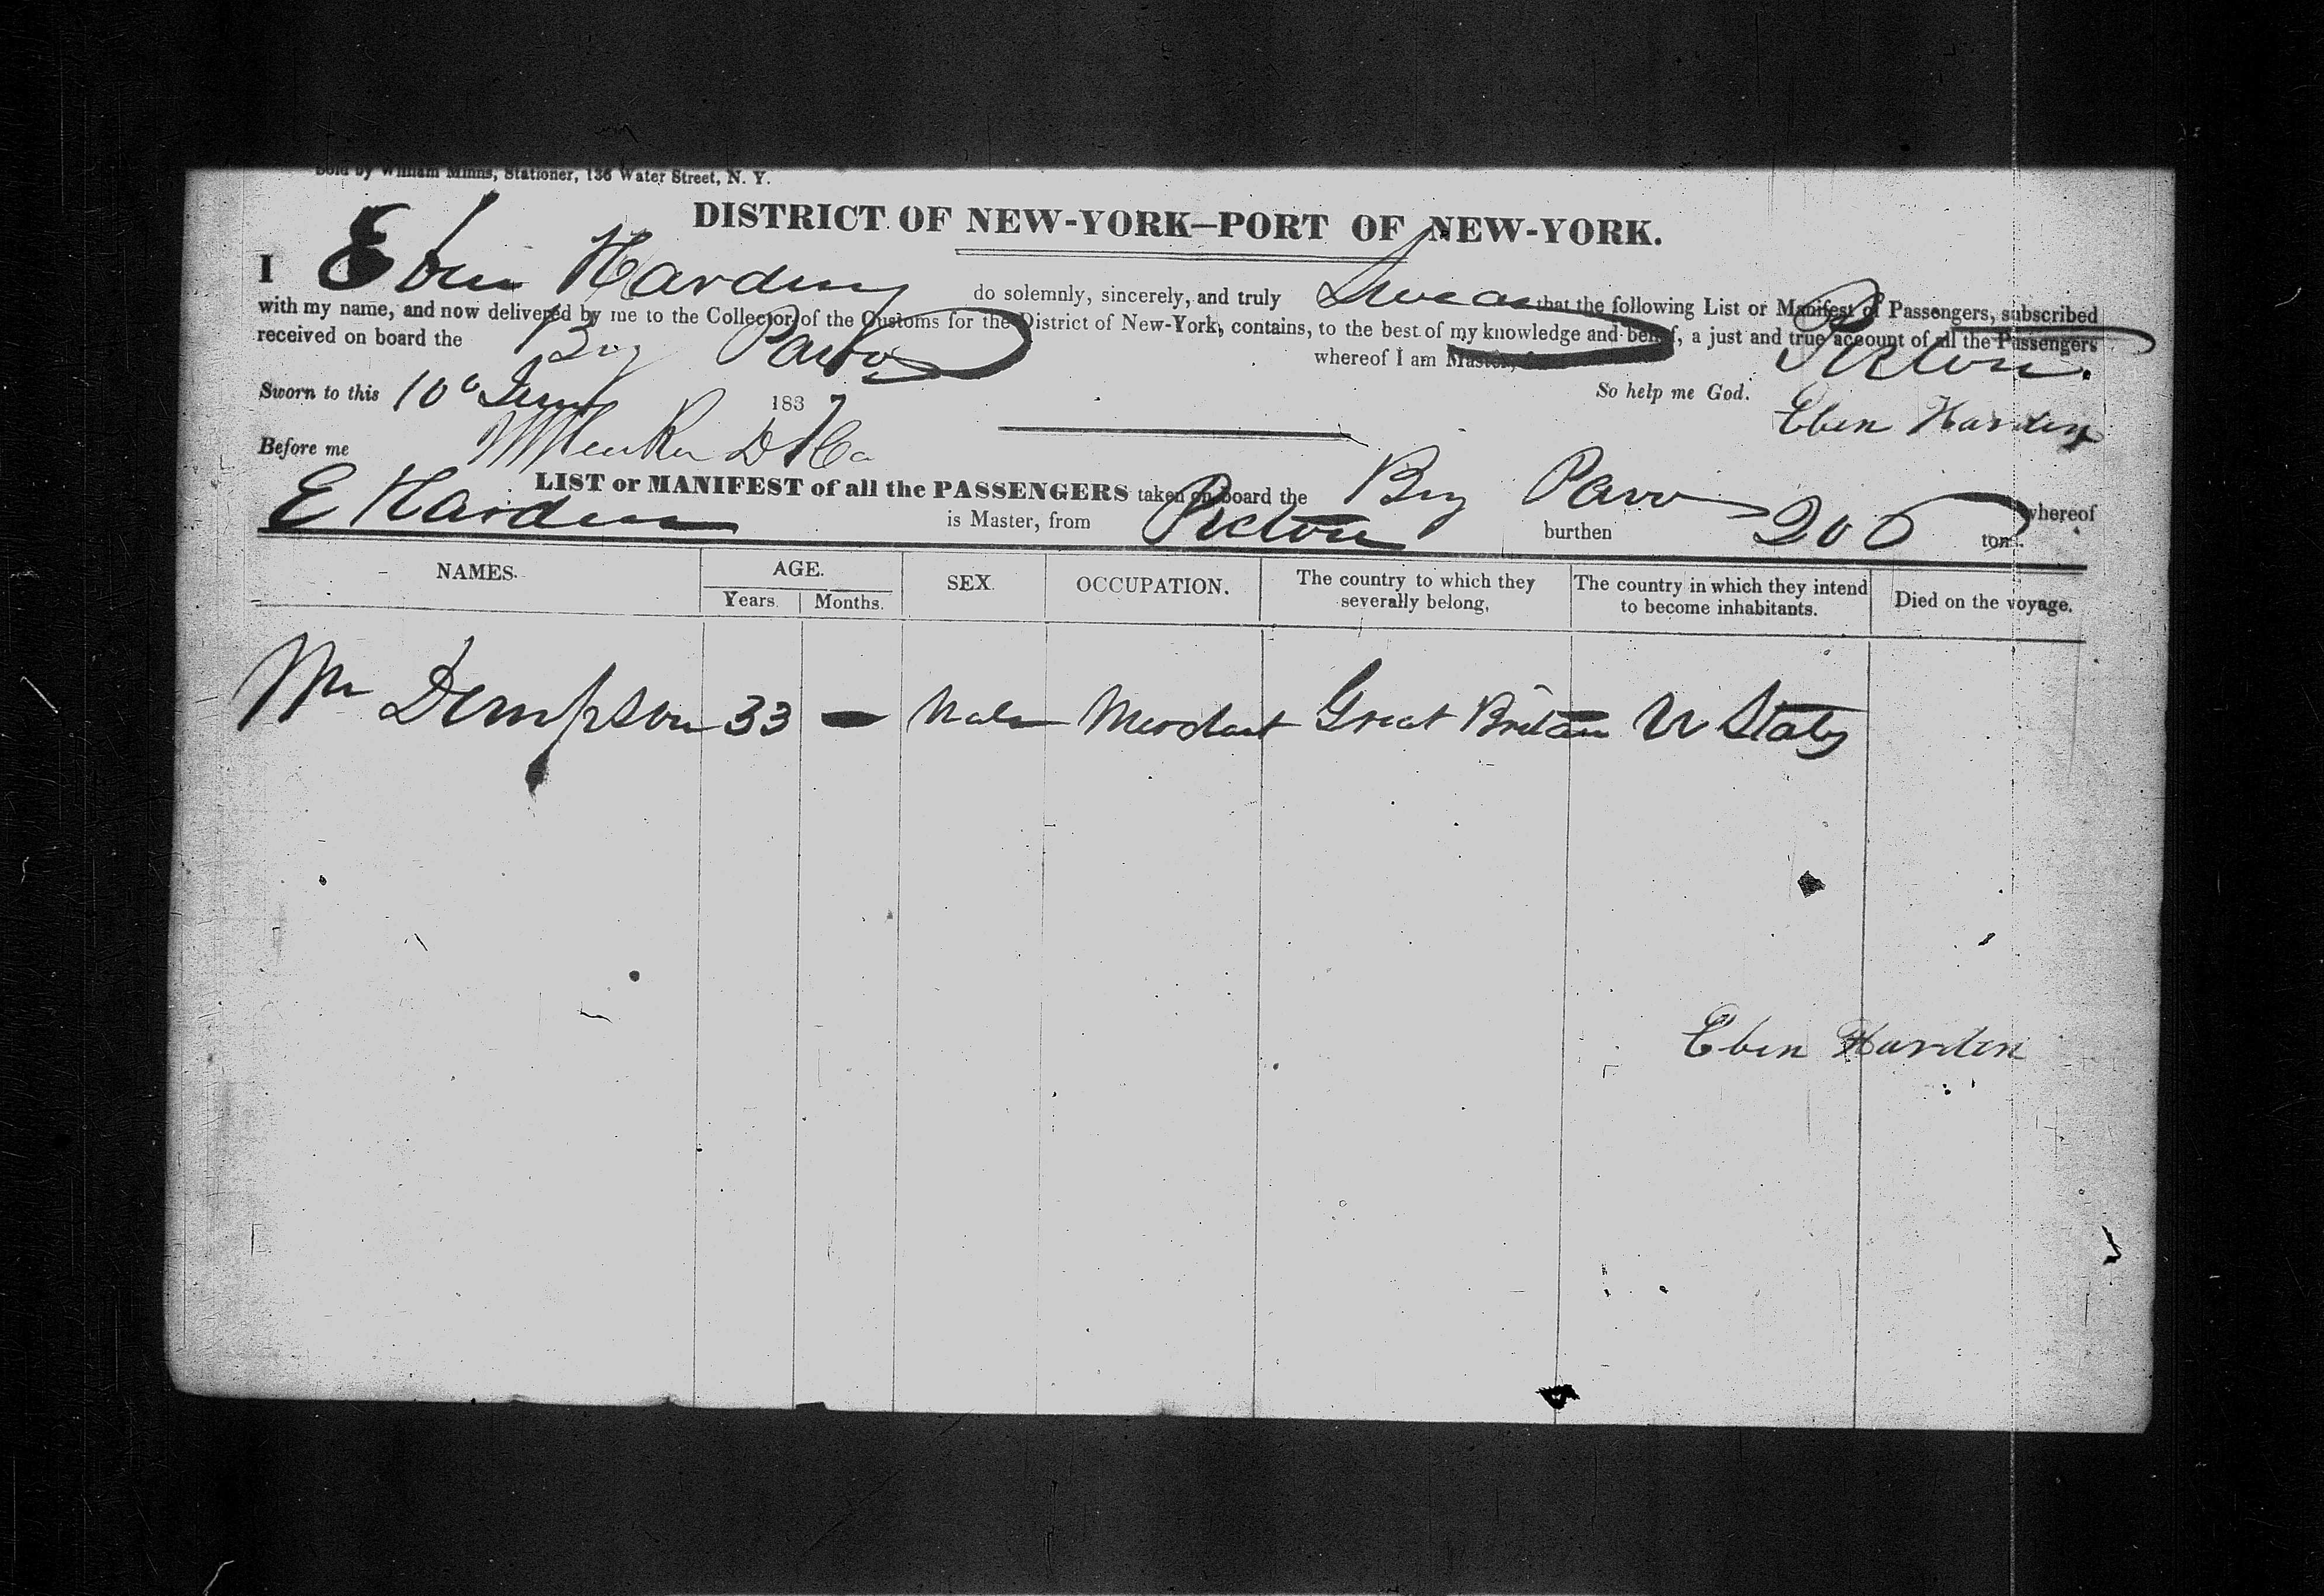 Sold by William Minns, Stationer, 136 Water Street, N. Y.
DISTRICT OF NEW-YORK—PORT OF NEW-YORK.
I Eben Harding do solemnly, sincerely, and truly Swear that the following List or Manifest of Passengers, subscribed
with my name, and now delivered by me to the Collector of the Customs for the District of New-York, contains, to the best of my knowledge and belief, a just and true account of all the Passengers
received on board the Brig whereof I am Master, from Pictou.
Sworn to this 10 June 1837 So help me God.
Eben Harden
Before me
LIST or MANIFEST of all the PASSENGERS taken on board the Brig whereof
E Harden is Master, from Pictou burthen 200 tons.
NAMES. AGE. SEX. OCCUPATION. The country to which they severally belong, The country in which they intend to become inhabitants. Died on the voyage.
Years. Months.
Mr Dempson 33 — Male Merchant Great Britain U States
Eben Harden